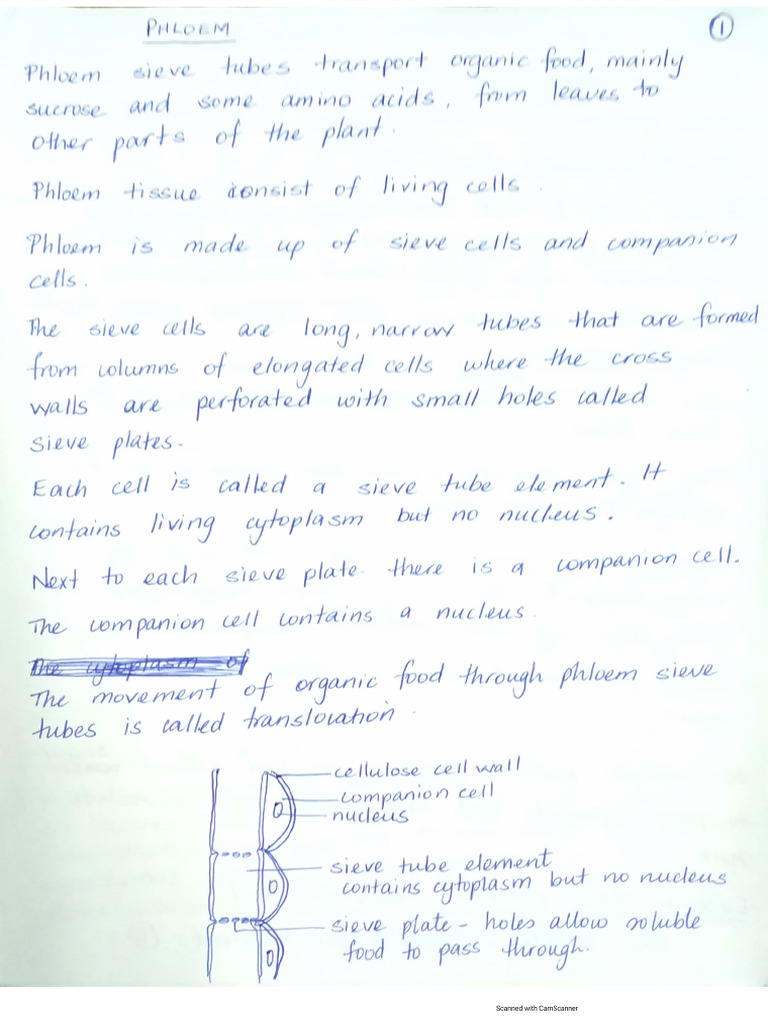 PHLOEM
1
Phloem sieve tubes transport organic food, mainly
sucrose and some amino acids, from leaves to
other parts of the plant.
Phloem tissue consist of living cells.
Phloem is made up of sieve cells and companion
cells.
The sieve cells are long, narrow tubes that are formed
from columns of elongated cells where the cross
walls are perforated with small holes called
sieve plates.
Each cell is called a sieve tube element. It
contains living cytoplasm but no nucleus.
Next to each sieve plate there is a companion cell.
The companion cell contains a nucleus.
The cytoplasm of
The movement of organic food through phloem sieve
tubes is called translocation.
cellulose cell wall
companion cell
nucleus
sieve tube element
contains cytoplasm but no nucleus
sieve plate - holes allow soluble
food to pass through.
Scanned with CamScanner